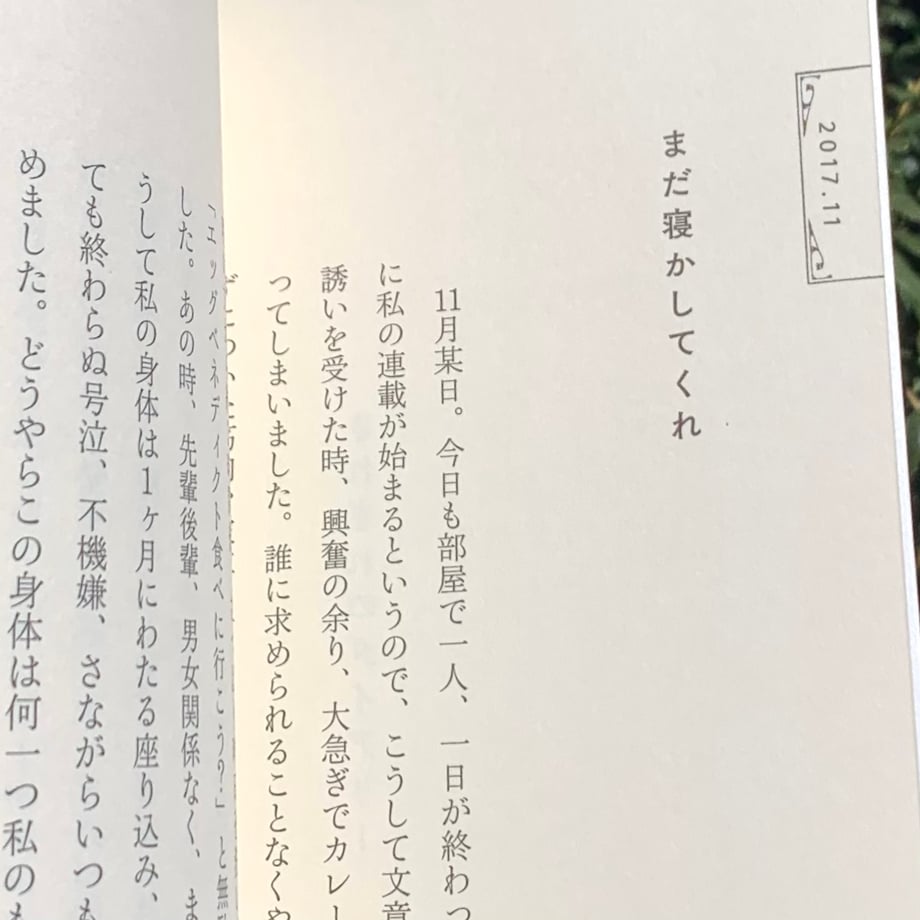 2017.11
まだ寝かしてくれ
11月某日。今日も部屋で一人、一日が終わっ
に私の連載が始まるというので、こうして文章
誘いを受けた時、興奮の余り、大急ぎでカレー
ってしまいました。誰に求められることなくや
「エッグベネディクト食べに行こう?」と無
した。あの時、先輩後輩、男女関係なく、ま
うして私の身体は1ヶ月にわたる座り込み、
ても終わらぬ号泣、不機嫌、さながらいつも
めました。どうやらこの身体は何一つ私のも